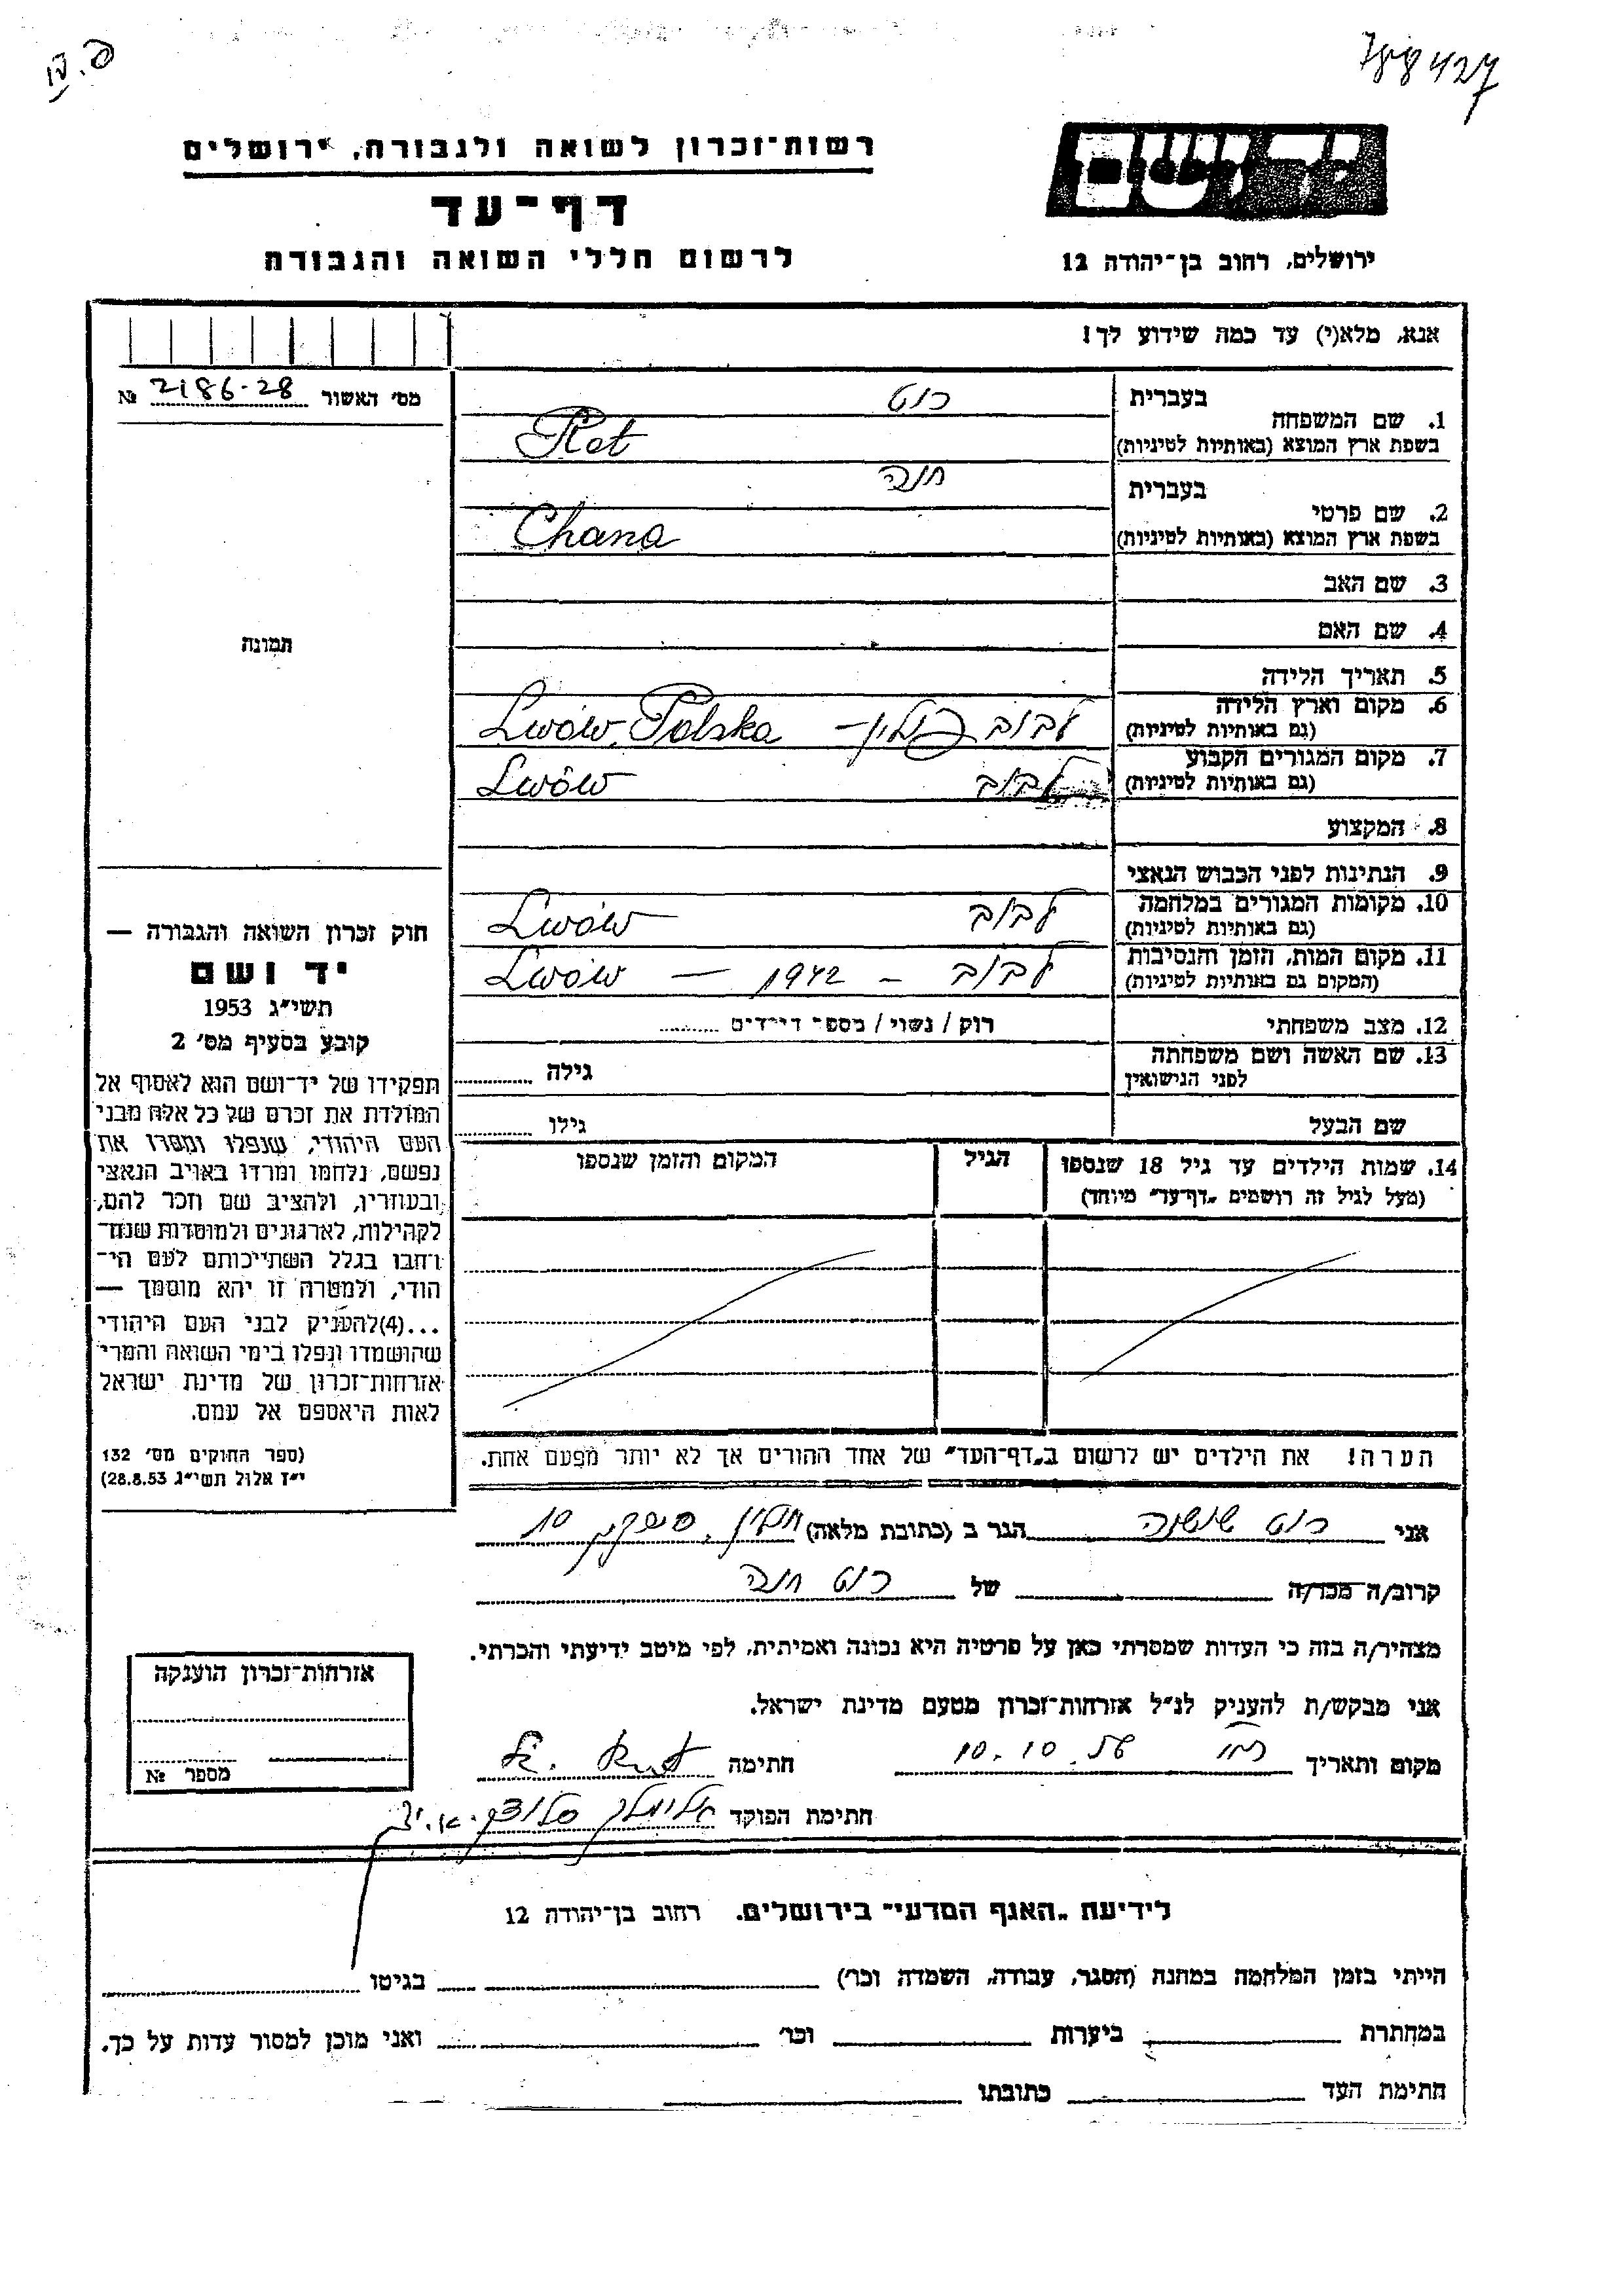 788427
רשות־זכרון לשואה ולגבורה, ירושלים
יד ושם
דף־עד
לרשום חללי השואה והגבורה
ירושלים, רחוב בן־יהודה 12
אנא, מלא(י) עד כמה שידוע לך!
מס׳ האשור 2186-28 №
בעברית
1. שם המשפחה
בשפת ארץ המוצא (באותיות לטיניות)
בעברית חנה
2. שם פרטי
בשפת ארץ המוצא (באותיות לטיניות) Chana
3. שם האב
4. שם האם
תמונה
5. תאריך הלידה
6. מקום וארץ הלידה לבוב פולין – Lwów, Polska
(גם באותיות לטיניות)
7. מקום המגורים הקבוע לבוב Lwów
(גם באותיות לטיניות)
8. המקצוע
9. הנתינות לפני הכבוש הנאצי
10. מקומות המגורים במלחמה לבוב Lwów
(גם באותיות לטיניות)
11. מקום המות, הזמן והנסיבות לבוב – 1942 – Lwów
(המקום גם באותיות לטיניות)
12. מצב משפחתי רוק / נשוי / מספר הילדים
13. שם האשה ושם משפחתה גילה
לפני הנישואין
שם הבעל גילו
14. שמות הילדים עד גיל 18 שנספו הגיל המקום והזמן שנספו
(מעל לגיל זה רושמים „דף־עד״ מיוחד)
חוק זכרון השואה והגבורה —
יד ושם
תשי״ג 1953
קובע בסעיף מס׳ 2
תפקידו של יד־ושם הוא לאסוף אל
המולדת את זכרם של כל אלה מבני
העם היהודי, שנפלו ומסרו את
נפשם, נלחמו ומרדו באויב הנאצי
ובעוזריו, ולהציב שם וזכר להם,
לקהילות, לארגונים ולמוסדות שנח־
רבו בגלל השתייכותם לעם הי־
הודי, ולמטרה זו יהא מוסמך —
...(4)להעניק לבני העם היהודי
שהושמדו ונפלו בימי השואה והמרי
אזרחות־זכרון של מדינת ישראל
לאות היאספם אל עמם.
(ספר החוקים מס׳ 132
י״ז אלול תשי״ג 28.8.53)
הערה! את הילדים יש לרשום ב„דף־העד״ של אחד ההורים אך לא יותר מפעם אחת.
אני שושנה הגר ב (כתובת מלאה) 10
קרוב/ה מכר/ה של חנה
מצהיר/ה בזה כי העדות שמסרתי כאן על פרטיה היא נכונה ואמיתית, לפי מיטב ידיעתי והכרתי.
אני מבקש/ת להעניק לנ״ל אזרחות־זכרון מטעם מדינת ישראל.
מקום ותאריך 10.10 חתימה
חתימת הפוקד
אזרחות־זכרון הוענקה
מספר №
לידיעת „האגף המדעי״ בירושלים, רחוב בן־יהודה 12
הייתי בזמן המלחמה במחנה (הסגר, עבודה, השמדה וכר׳) בגיטו
במחתרת ביערות וכר׳ ואני מוכן למסור עדות על כך.
חתימת העד כתובתו